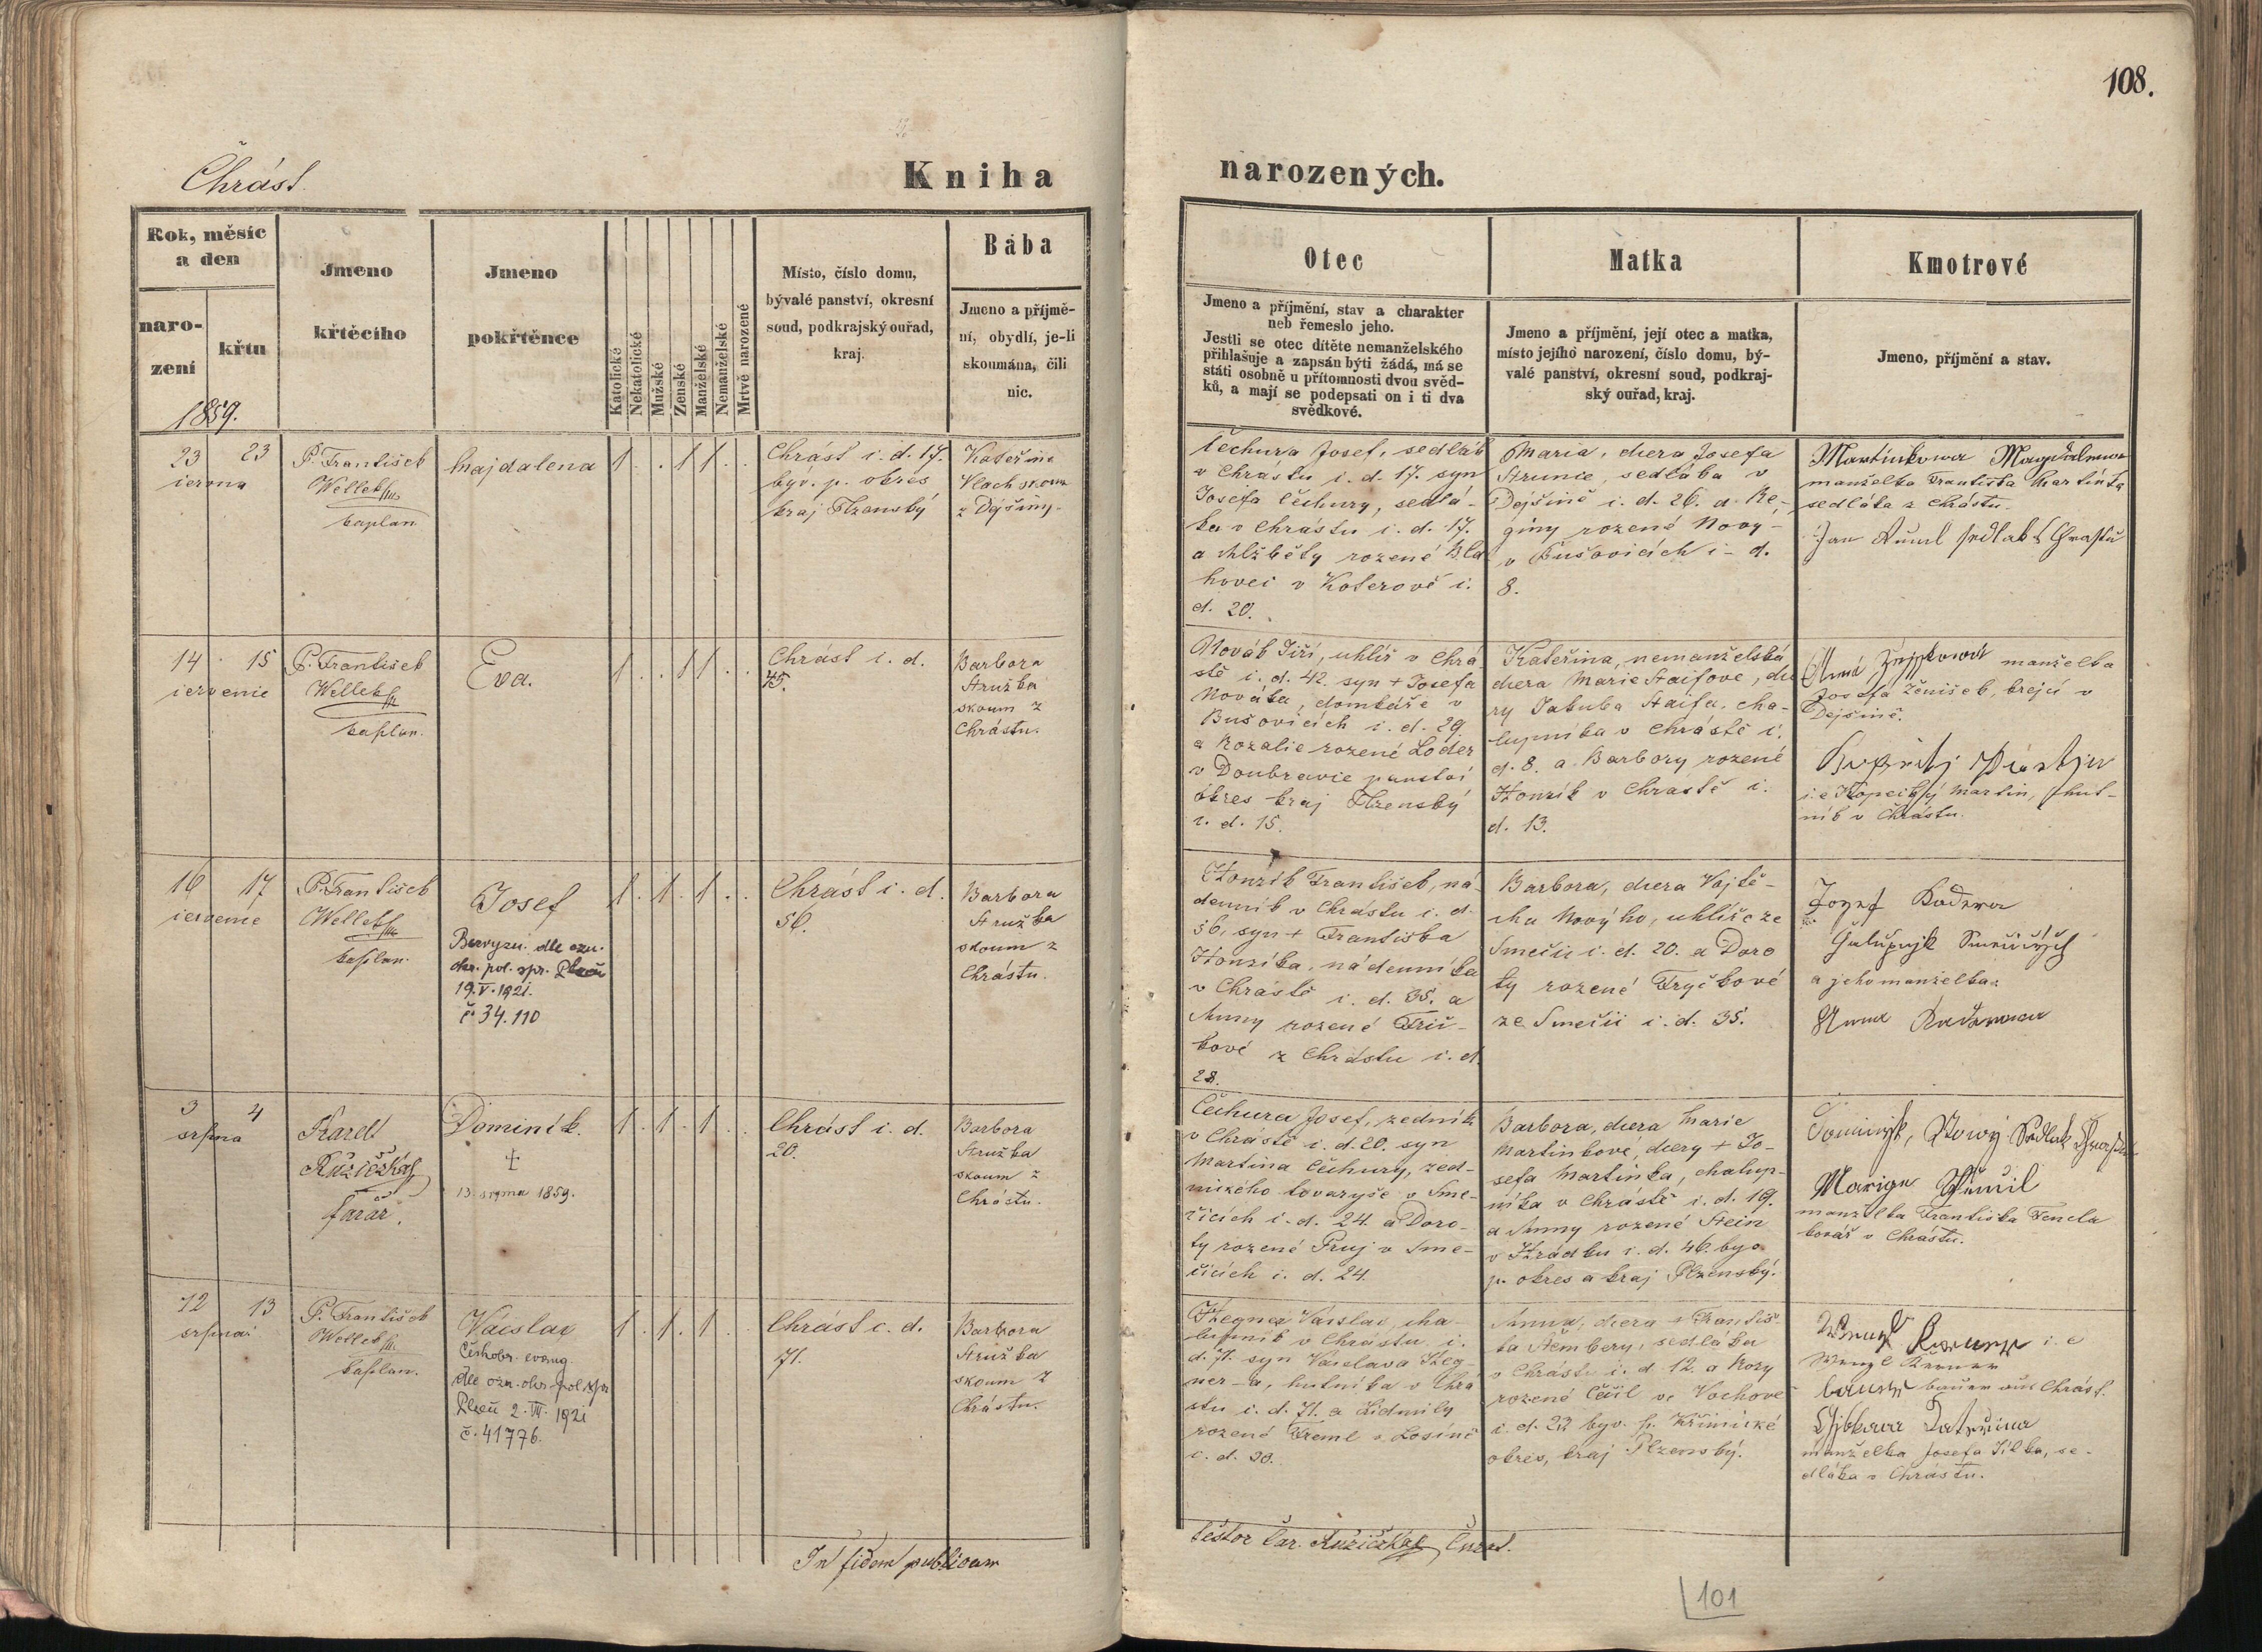 108.
Chrást
Kniha narozených.
Rok, měsíc
a den
naro-
zení
křtu
1859.
Jmeno
křtěcího
Jmeno
pokřtěnce
Katolické
Nekatolické
Mužské
Ženské
Manželské
Nemanželské
Mrtvě narozené
Místo, číslo domu,
bývalé panství, okresní
soud, podkrajský ouřad,
kraj.
Bába
Jmeno a příjmě-
ní, obydlí, je-li
skoumána, čili
nic.
Otec
Jmeno a příjmění, stav a charakter
neb řemeslo jeho.
Jestli se otec dítěte nemanželského
přihlašuje a zapsán býti žádá, má se
státi osobně u přítomnosti dvou svěd-
ků, a mají se podepsati on i ti dva
svědkové.
Matka
Jmeno a příjmění, její otec a matka,
místo jejího narození, číslo domu, bý-
valé panství, okresní soud, podkraj-
ský ouřad, kraj.
Kmotrové
Jmeno, příjmění a stav.
23 23
června
P. František
Wellek
kaplan
Majdalena
1 . . 1 1 . .
Chrást č. d. 17.
býv. p. okres
kraj Plzenský
Kateřina
Vlach skoum
z Dejšiny.
Čechura Josef, sedlák
v Chrástu č. d. 17. syn
Josefa Čechury, sedlá-
ka v Chrástu č. d. 17.
a Alžběty rozené Bla
hovec v Koterově č.
d. 20.
Maria, dcera Josefa
Strunce, sedláka v
Dejšině č. d. 26. a Re-
giny rozené Nový-
v Bušovicích č. d.
8.
Martinkowa Magdalena
manželka Františka Martínka
sedláka z Chrástu.
Jan sedlak z Chrastu
14 15
července
P. František
Wellek
kaplan.
Eva.
1 . . 1 1 . .
Chrást č. d.
45.
Barbora
Stružka
skoum z
Chrástu.
Novák Jiří, uhlíř v Chrá
stě č. d. 42. syn + Josefa
Nováka, domkáře v
Bušovicích č. d. 29.
a Rozalie rozené Loder
v Doubravce panství
okres kraj Plzenský
č. d. 15.
Kateřina, nemanželská
dcera Marie Staifove, dce
ry Jakuba Staifa, cha-
lupníka v Chrástě č.
d. 8. a Barbory rozené
Honzík v Chrastě č.
d. 13.
Anna manželka
Josefa Ženíšek, krejčí v
Dejšině.
i. e Kopecký Martin, hut-
ník v Chrástu.
16 17
července
P. František
Wellek
kaplan.
Josef
Bezvyzn. dle ozn.
okr. pol. spr. Plzeň
19. V. 1921.
č. 34.110
1 . 1 . 1 . .
Chrást č. d.
56.
Barbora
Stružka
skoum z
Chrástu.
Honzík František, ná-
denník v Chrástu č. d.
56, syn + Františka
Honzíka, nádenníka
v Chrástě č. d. 35. a
Anny rozené Frič-
kové z Chrástu č. d.
28.
Barbora, dcera Vojtě-
cha Nového, uhlíře ze
Smečic č. d. 20. a Doro
ty rozené Fryčkové
ze Smečic č. d. 35.
Jozef Kaderea
a jeho manželka:
Anna
3 4
srpna
Karel
Růžička
farář.
Dominik.
+
13 srpna 1859.
1 . 1 . 1 . .
Chrást č. d.
20.
Barbora
Stružka
skoum z
Chrástu.
Čechura Josef, zedník
v Chrástě č. d. 20. syn
Martina Čechury, zed-
nického tovaryše v Sme-
čicích č. d. 24. a Doro-
ty rozené Pruj v Sme-
čicích č. d. 24.
Barbora, dcera Marie
Martinkové, dcery + Jo-
sefa Martinka, chalup-
níka v Chrástě č. d. 19.
a Anny rozené Stein
v Hrádku č. d. 46. byv.
p. okres a kraj Plzenský.
Dominyk, Nowý Sedlak
Marige
manželka Františka Fencla
kovář v Chrástu.
12 13
srpna
P. František
Wellek
kaplan.
Václav
Českobr. evang.
dle ozn. okr. pol. spr.
Plzeň 2. VII. 1921
č. 41776.
1 . 1 . 1 . .
Chrást č. d.
71.
Barbora
Stružka
skoum z
Chrástu.
Hegner Václav, cha-
lupník v Chrástu č.
d. 71. syn Václava Heg-
ner-a, hutníka v Chrá
stu č. d. 71. a Lidmily
rozené Treml v Losíně
č. d. 20.
Anna, dcera + Františ-
ka Štembery, sedláka
v Chrástu č. d. 12 a Rozy
rozené Čečil ve Vochově
č. d. 22 byv. p. Křimické
okres, kraj Plzenský.
Wenzl i. e
Wenzl
bauer aus Chrást.
manželka Josefa Jílka, se-
dláka v Chrástu.
In fidem publicam
testor Car. Růžička Curat.
101